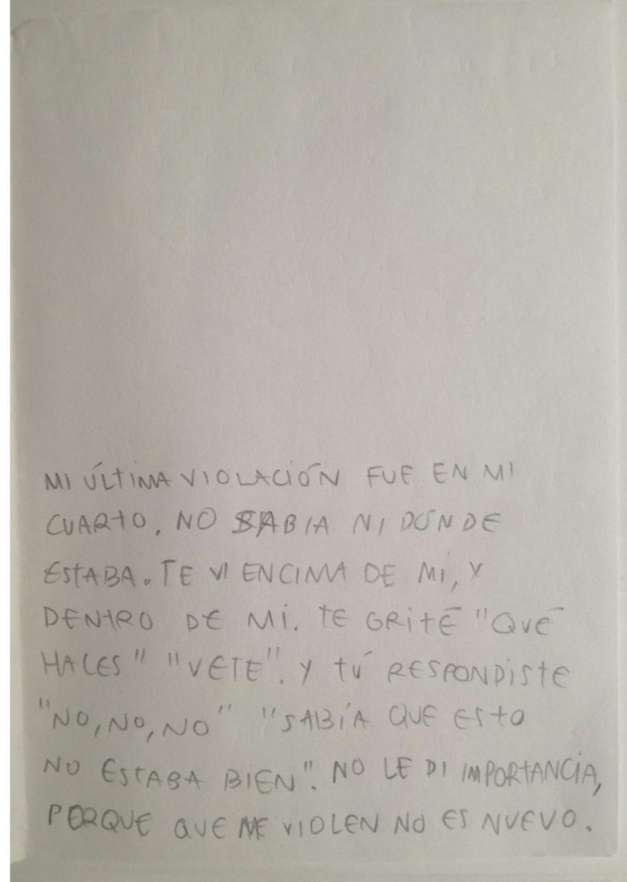 MI ÚLTIMA VIOLACIÓN FUE EN MI
CUARTO, NO SABIA NI DÓNDE
ESTABA. TE VI ENCIMA DE MI, Y
DENTRO DE MI. TE GRITÉ "QUÉ
HACES" "VETE". Y TÚ RESPONDISTE
"NO, NO, NO" "SABÍA QUE ESTO
NO ESTABA BIEN". NO LE DI IMPORTANCIA,
PORQUE QUE ME VIOLEN NO ES NUEVO.